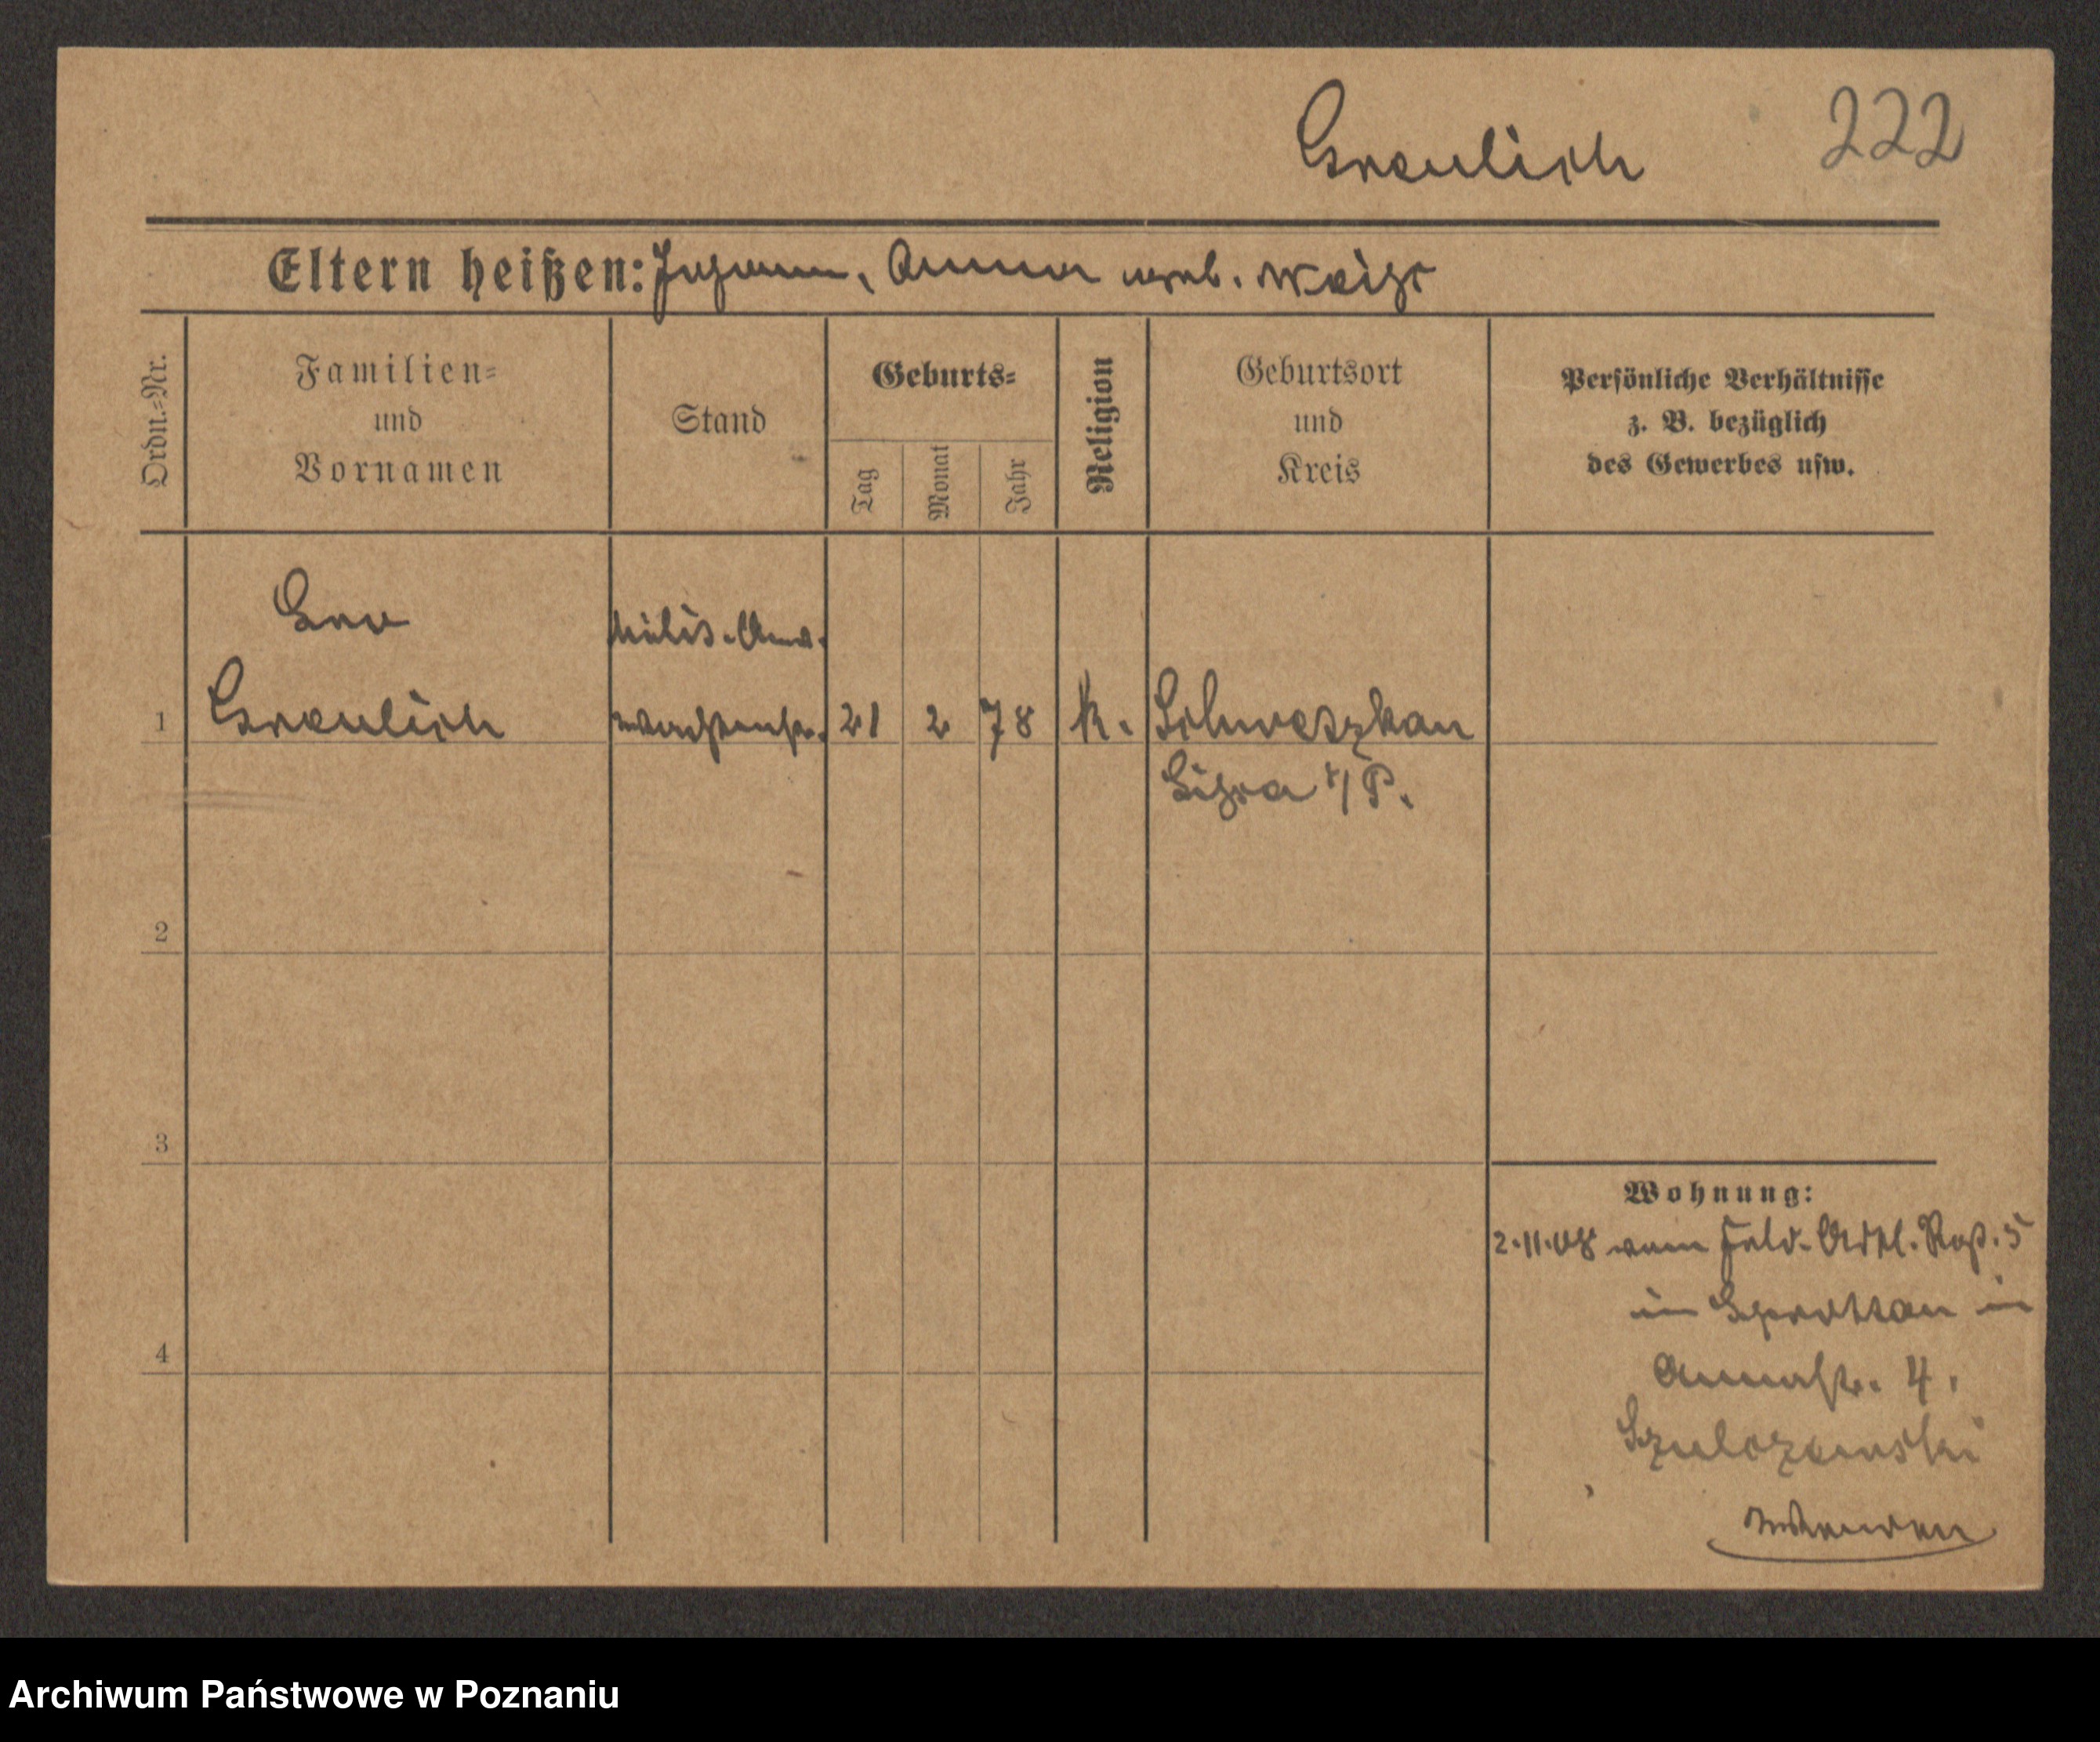 Greulich 222
Eltern heißen: Johann, Anna geb. Weigt
Ordn.-Nr.
Familien-
und
Vornamen
Stand
Geburts-
Tag
Monat
Jahr
Religion
Geburtsort
und
Kreis
Persönliche Verhältnisse
z. B. bezüglich
des Gewerbes usw.
Leo
Milit.-Anw.
1 Greulich 21 2 78 k. Schweszkau
Lissa i/P.
2
3
4
Wohnung:
2.11.08 vom Feld-Artl. Rgt. 5
in Sprottau in
Annastr. 4.
Szulczewski